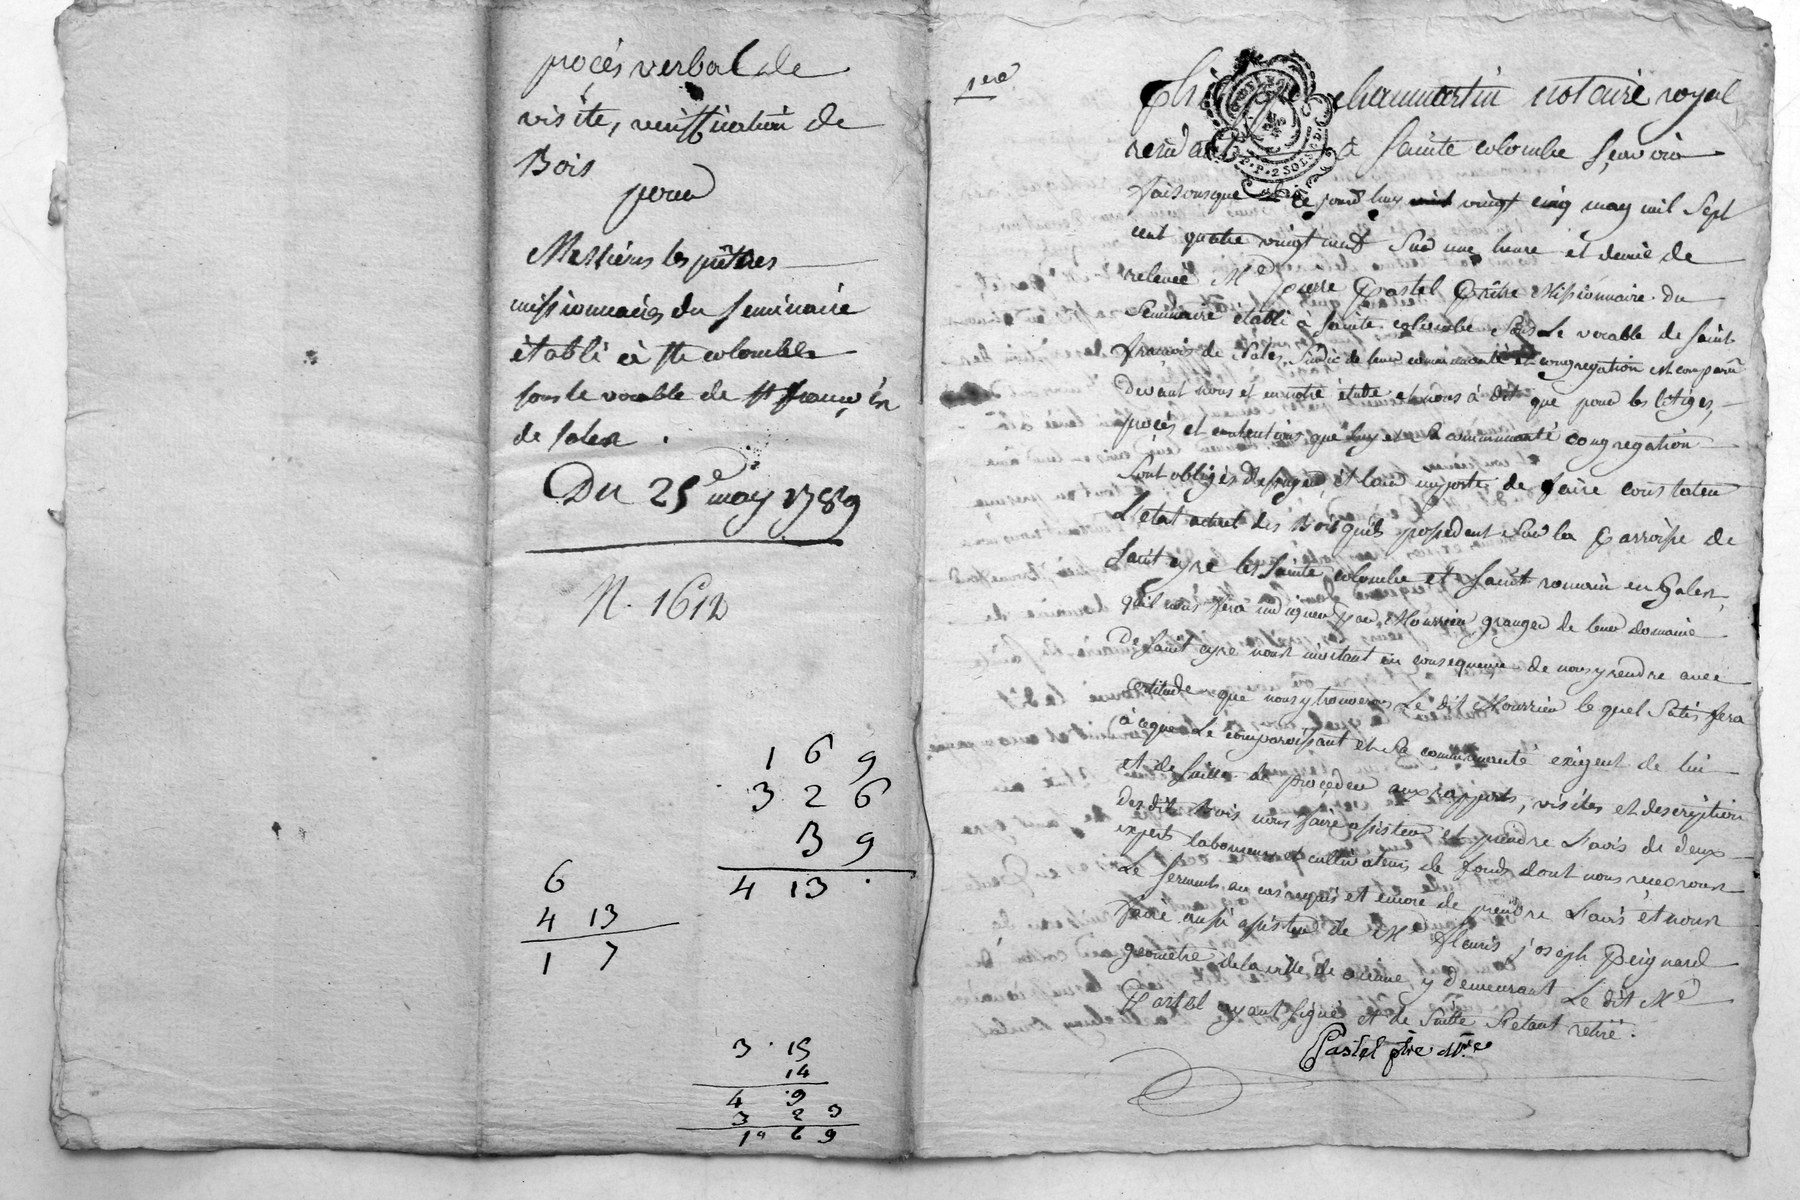 procés verbal de
visite, veriffication de
Bois
pour
Messieurs les prêtres
missionnaires du seminaire
établi à Ste colombe
sous le vocable de st françois
de sales.
Du 25e may 1789
N. 1612
1 6 9
3 2 6
3 9
4 13
6
4 13
1 7
3 15
14
4 9
3 2 3
1 6 9
1ere
chaumartin notaire royal
à Sainte colombe sçavoir
faisons que ce jourd'huy vingt cinq may mil sept
cent quatre vingt neuf sur une heure et demie de
relevée Me pierre Pastel Prêtre Missionnaire du
Seminaire établi à Sainte colombe sous Le vocable de saint
françois de Sales, Sindic de leur communauté et congregation est comparû
devant nous et en notre étude et nous à dit que pour les litiges,
procés et contentions que luy et sa communauté congregation
sont obligés d'essuyer, il leur importe de faire constater
L'etat actuel des Bois qu'ils possedent sur la Parroisse de
saint cyre les sainte colombe et saint romain en Galer,
qu'il nous sera indiqué par Mourrier granger de leur domaine
de saint cyre nous invitant en consequence de nous y rendre avec
certitude que nous y trouverons Le dit Mourrier le quel satisfera
à ce que Le comparoissant et Sa communauté éxigent de lui
et de suitte de proçeder aux rapports, visites et description
desdits bois nous faire assister et prendre L'avis de deux
experts laboureurs et cultivateurs de fonds dont nous recevrons
Le serment au cas requis et encore de prendre L'avis et nous
faire aussi assister de Me fleuris joseph Peignard
geometre de la ville de vienne y demeurant Le dit Me
Pastel ayant signé et de suitte s'etant retiré.
Pastel ptre Mre